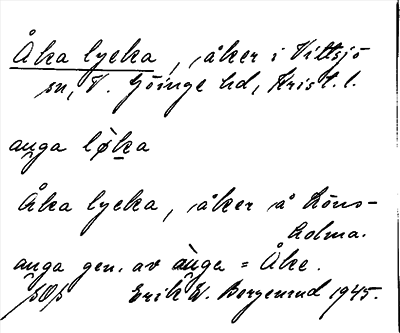 Åka lycka, åker i Vittsjö
sn, V. Göinge hd, Krist. l.
au̯ga lø̀ka
Åka lycka, åker å Höns-
holma.
au̯ga gen. av àu̯ga = Åke.
Erik W. Borgenrud 1945.